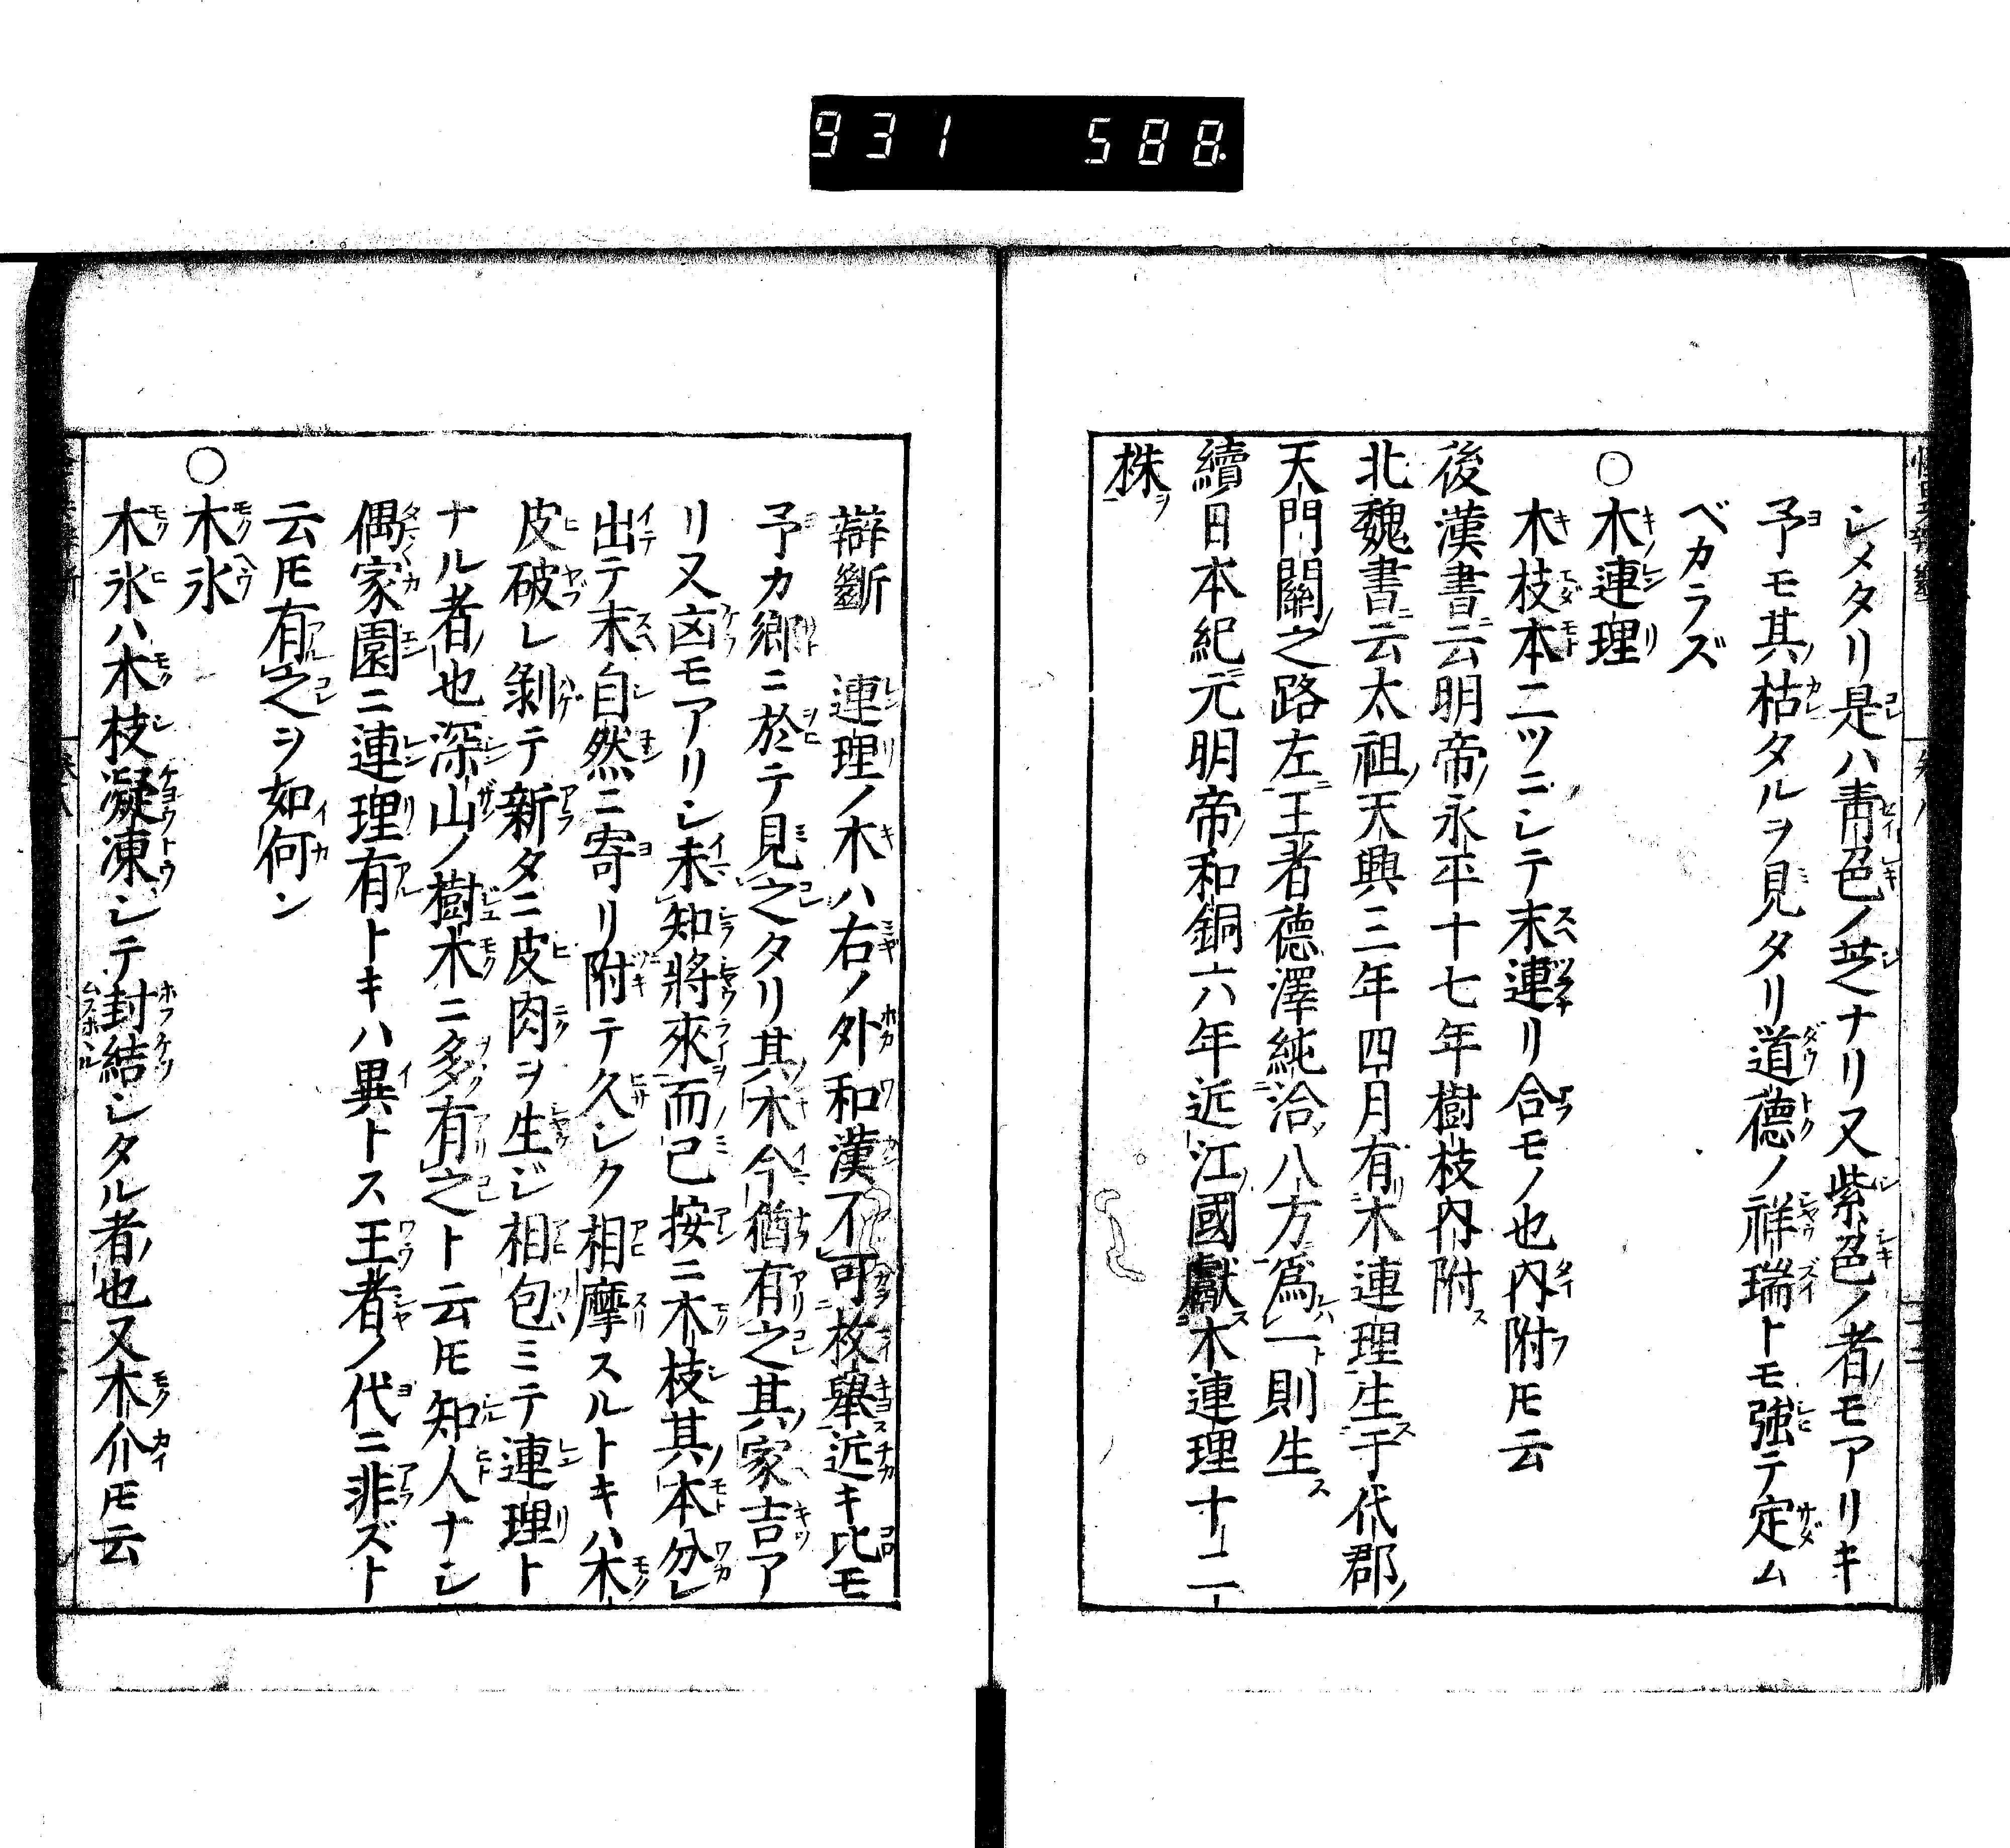 931 588
シメタリ是ハ青色ノ芝ナリ又紫色ノ者モアリキ
予モ其枯タルヲ見タリ道德ノ祥瑞トモ強テ定ム
ベカラズ
○木連理
木枝本二ツニシテ末連リ合モノ也内附𪜈云
後漢書云明帝永平十七年樹枝內附
北魏書云太祖天興三年四月有木連理生于代郡
天門關之路左王者德澤純洽八方爲一則生
續日本紀元明帝和銅六年近江國獻木連理十二
株
辯斷 連理ノ木ハ右ノ外和漢不可枚舉近キ比モ
予カ鄉ニ於テ見之タリ其木今猶有之其家吉ア
リ又凶モアリシ未知將來而已按ニ木枝其本分レ
出テ末自然ニ寄リ附テ久シク相摩スルトキハ木
皮破レ剝テ新タニ皮肉ヲ生ジ相包ミテ連理ト
ナル者也深山ノ樹木ニ多有之ト云𪜈知人ナシ
偶家園ニ連理有トキハ異トス王者ノ代ニ非ズト
云𪜈有之ヲ如何ン
○木氷
木氷ハ木枝凝凍シテ封結シタル者也又木介𪜈云